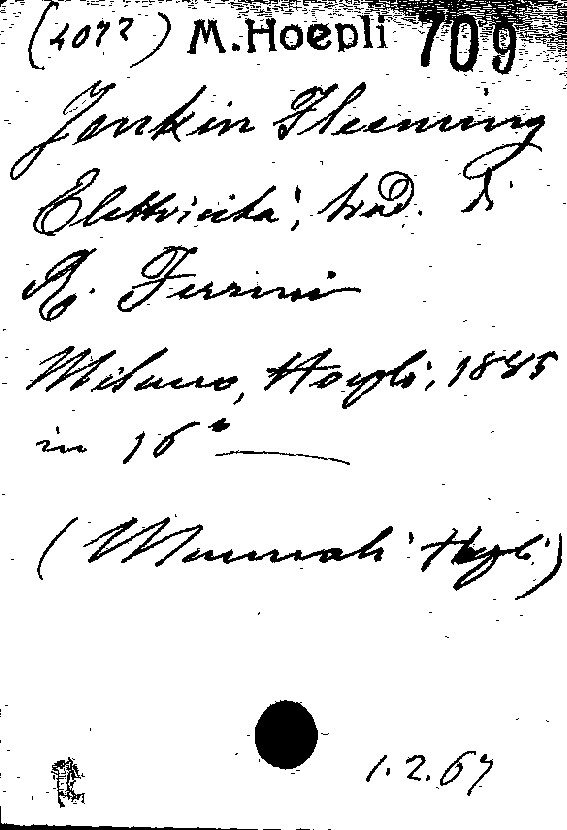 (4072) M.Hoepli 709
Jenkin Fleeming
Elettricità, trad. di
R. Ferrini
Milano, Hoepli, 1885
in 16°
(Manuali Hoepli)
1.2.67